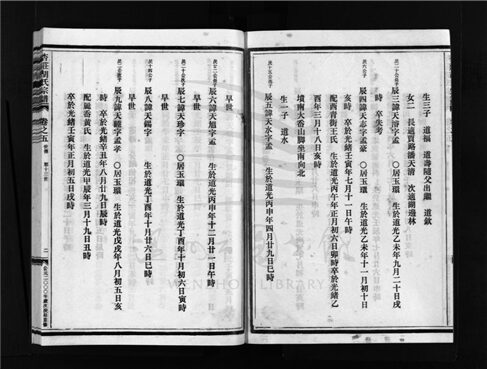 生三子 道福 道壽隨父出繼 道歡
女二 長適賈路潘天清 次適關邊林
辰三諱天濬字孟 〇居玉環 生於道光乙未年九月二十日戌
時 卒失考
辰四諱天志字孟豪 〇居玉環 生於道光乙未年十一月初十日
亥時 卒於光緒壬寅年七月十一日午時
配西青街王氏 生於道光丙午年正月初六日卯時卒於光緒乙
酉年三月十八日亥時
墳南大岙山脚坐南向北
辰五諱天水字孟 生於道光丙申年四月廿九日巳時
生一子 道水
早世
辰六諱天 字孟 生於道光丙申年十二月廿一日午時
早世
辰七諱天珍字 〇居玉環 生於道光丁酉年十月初六日寅時
早世
辰八諱天錫字 生於道光丁酉年十月廿六日巳時
早世
辰九諱天 字孟 〇居玉環 生於道光戊戌年八月初五日亥
時 卒於光緒辛丑年八月廿九日辰時
配 岙黃氏 生於道光甲辰年三月十九日丑時
卒於光緒壬寅年正月初五日戌時
杏莊胡氏宗譜 卷之五
WENZHOU LIBRARY